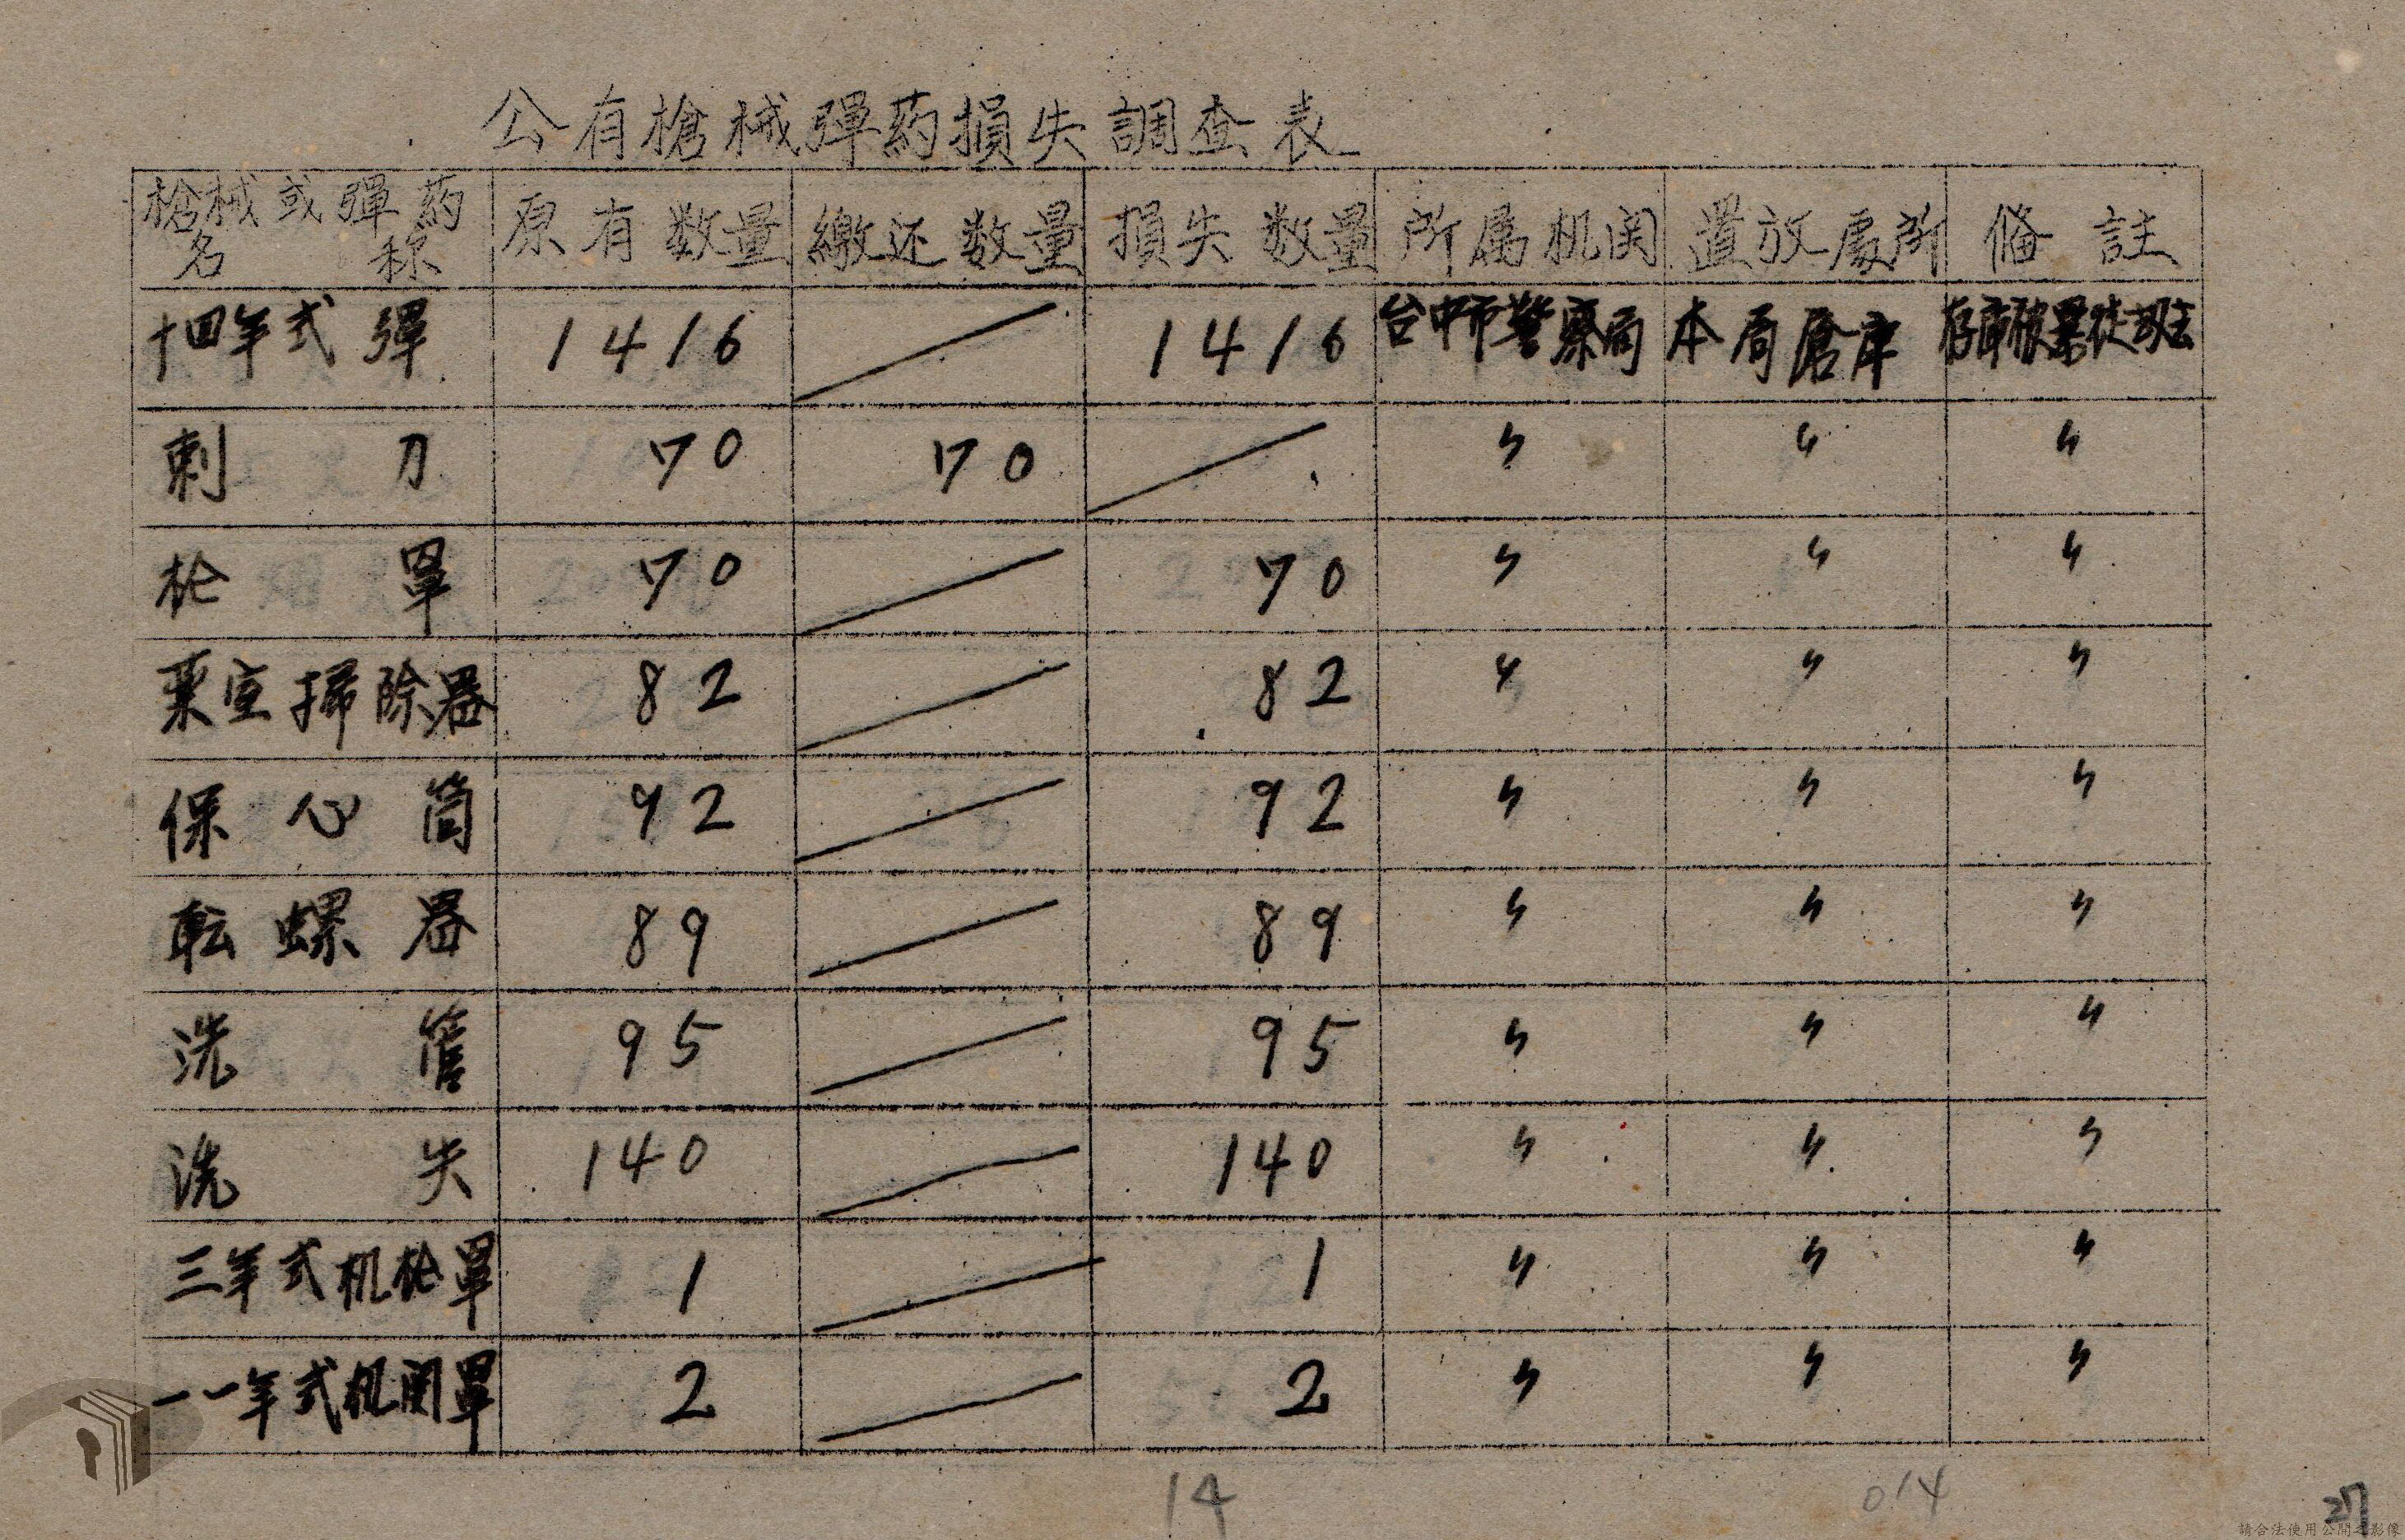 公有槍械彈药損失調查表
槍械或彈药名称 原有数量 繳还数量 損失数量 所属机関 置放處所 俻註
十四年式彈 1416 1416 台中市警察局 本局倉庫 存庫被暴徒刼去
刺刀 70 70 〃 〃 〃
枪罩 70 70 〃 〃 〃
藥室掃除器 82 82 〃 〃 〃
保心筒 92 92 〃 〃 〃
転螺器 89 89 〃 〃 〃
洗管 95 95 〃 〃 〃
洗矢 140 140 〃 〃 〃
三年式机枪罩 1 1 〃 〃 〃
一一年式机関罩 2 2 〃 〃 〃
14 014 27
請合法使用公開之影像